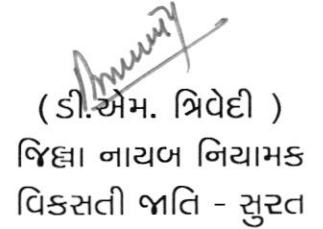 ( ડી.એમ. ત્રિવેદી )
જિલ્લા નાયબ નિયામક
વિકસતી જાતિ - સુરત